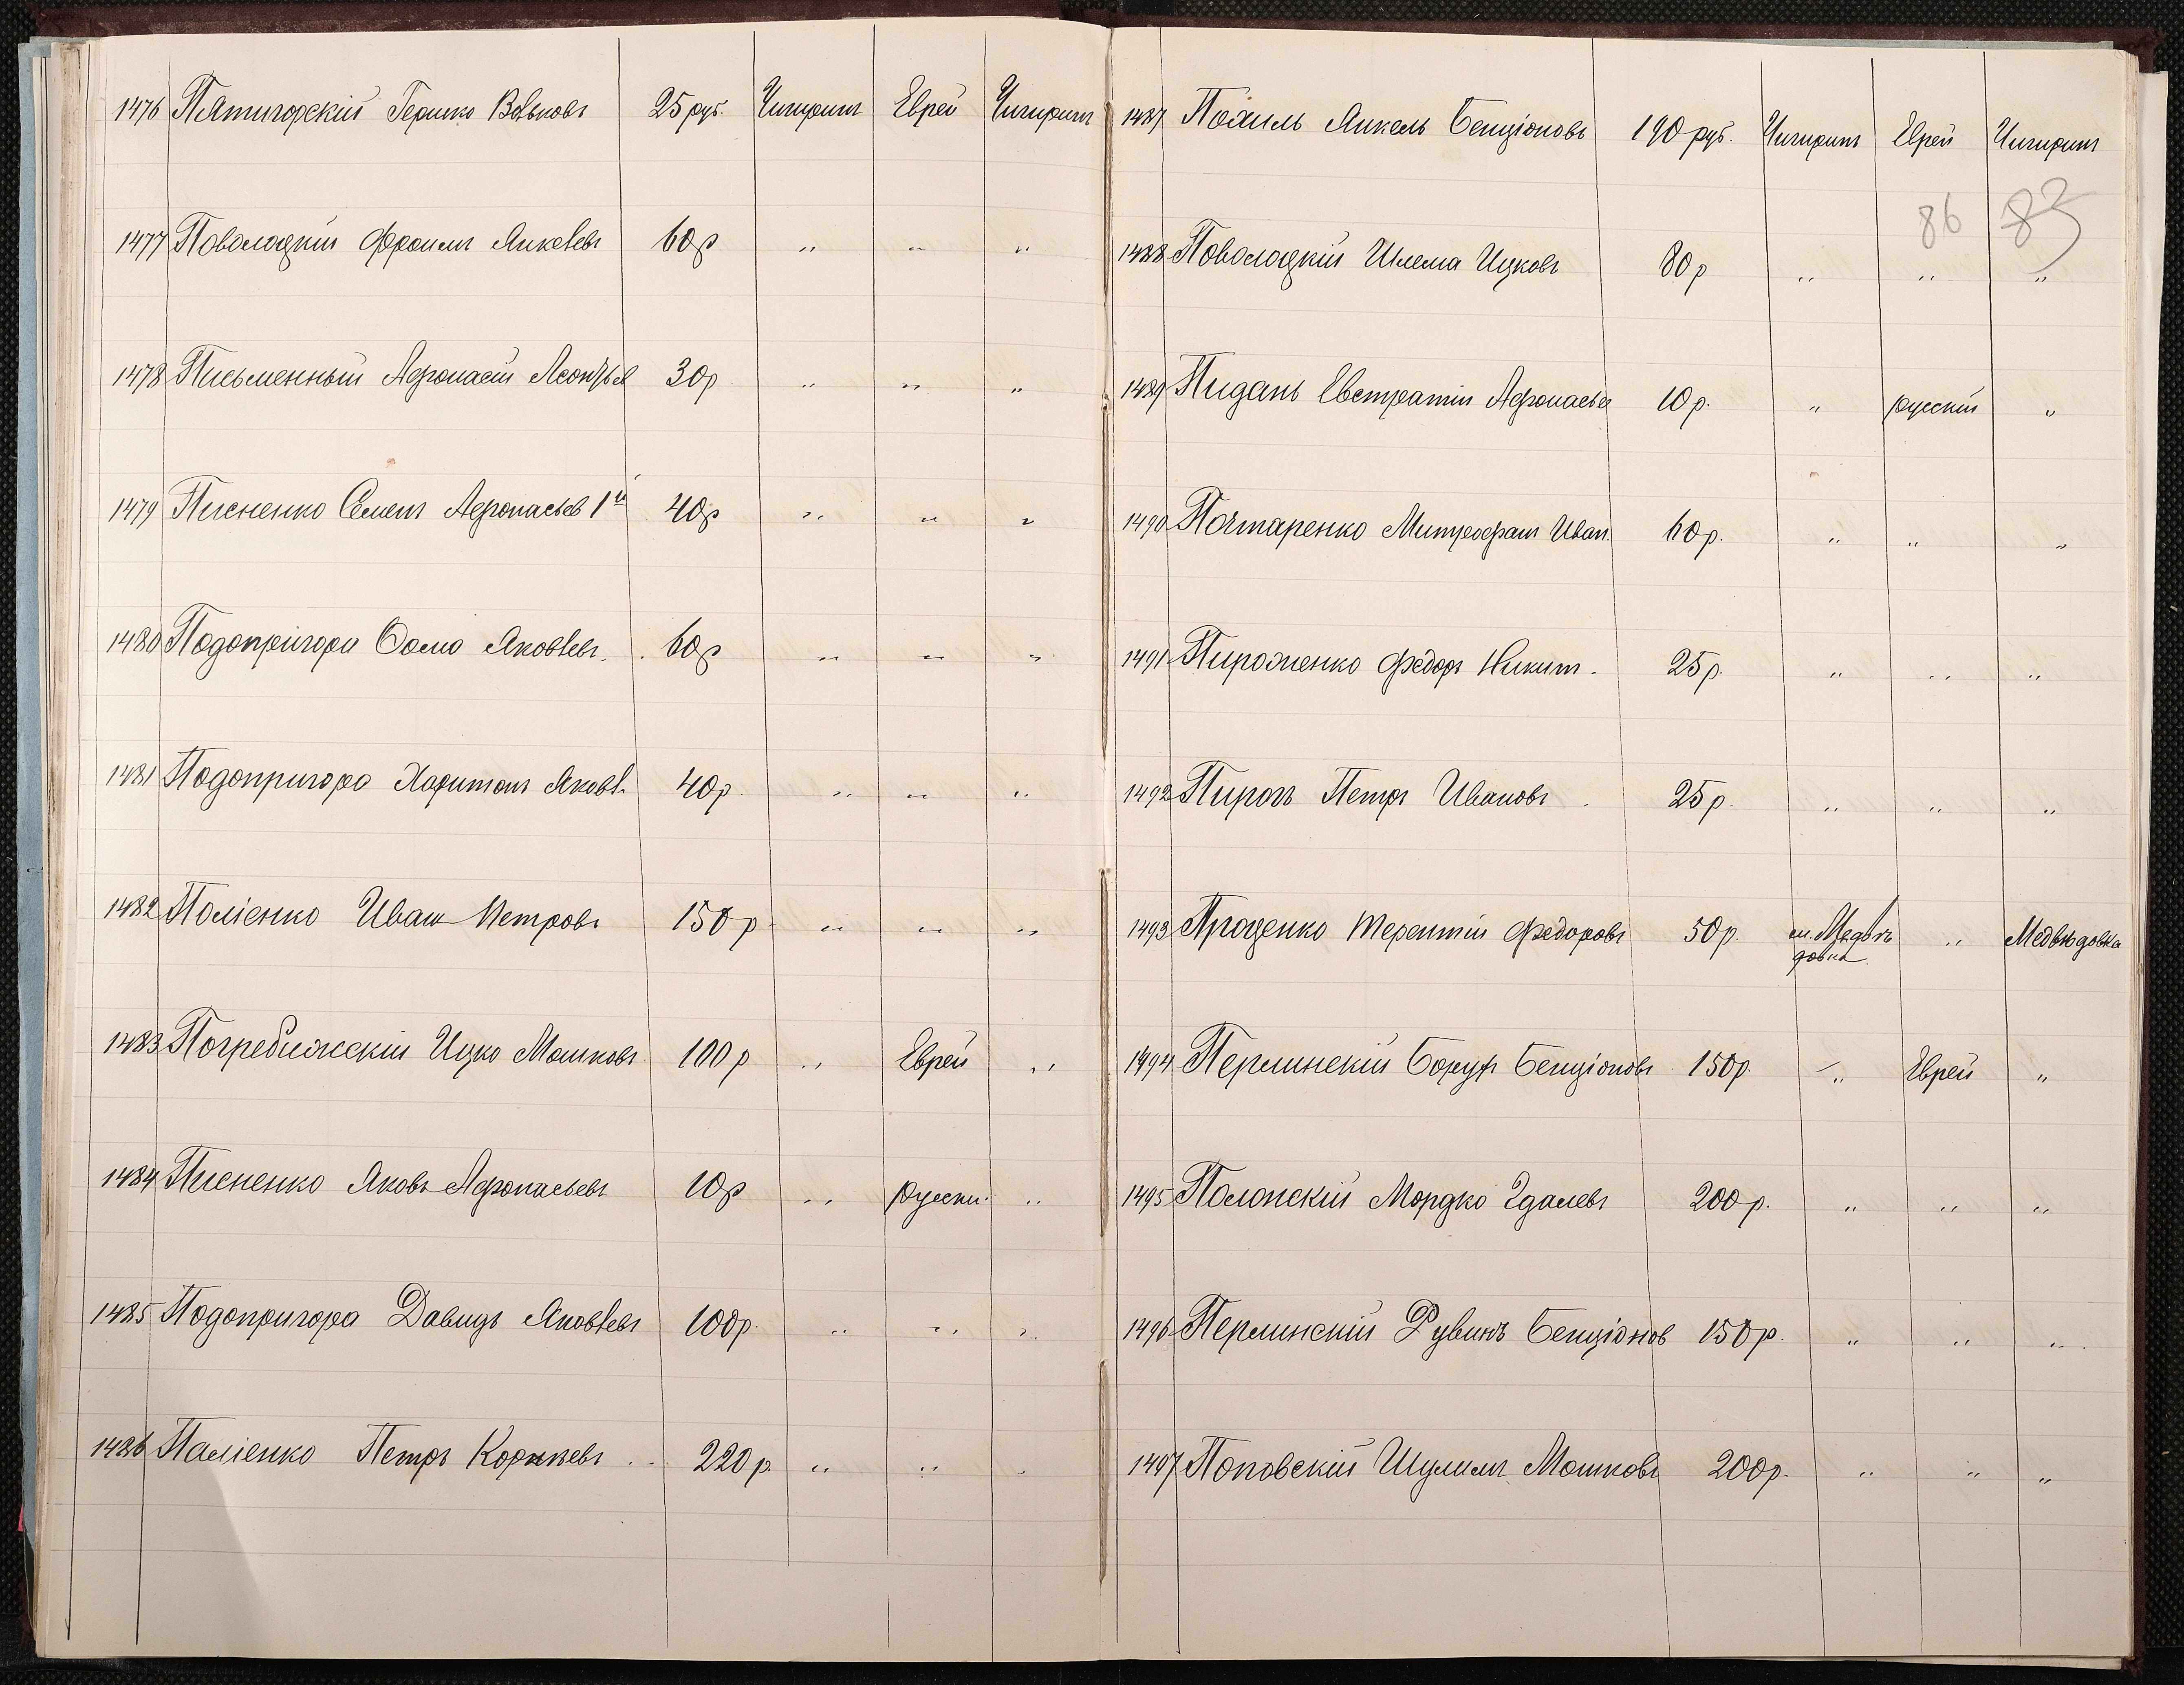 1476 Пятигорскій Гершко Вольковъ 25 руб. Чигиринъ Еврей Чигиринъ
1477 Поволоцкій Фроимъ Янкелевъ 60 р " " "
1478 Письменный Афонасій Леонтьев 30 р " " "
1479 Писненко Семенъ Афонасьев 1й 40 р " " "
1480 Подопригора Ѳома Яковлевъ 60 р " " "
1481 Подопригора Харитонъ Яковл. 40 р. " " "
1482 Поліенко Иванъ Петровъ 150 р " " "
1483 Погребижскій Ицко Мошковъ 100 р " Еврей "
1484 Писненко Яковъ Афонасьевъ 10 р " русски. "
1485 Подопригора Давидъ Яковлевъ 100 р. " " "
1486 Паліенко Петръ Корнѣевъ 220 р. " " "
1487 Похиль Янкель Бенціоновъ 190 руб. Чигиринъ Еврей Чигиринъ
86 83
1488 Поволоцкій Шлема Ицковъ 80 р " " "
1489 Пидань Евстратій Афонасьев 10 р. " русскій "
1490 Почтаренко Митрофанъ Иван. 60 р. " " "
1491 Пироженко Федоръ Никит. 25 р. " " "
1492 Пирогъ Петръ Ивановъ 25 р. " " "
1493 Проценко Терентій Федоровъ 50 р. м. Медвѣ " Медвѣдовка
довка
1494 Перлинскій Борухъ Бенціоновъ 150 р. " Еврей "
1495 Полонскій Мордко Эдалевъ 200 р. " " "
1496 Перлинскій Рувинъ Бенціонов 150 р. " " "
1497 Поповскій Шулимъ Мошковъ 200 р. " " "